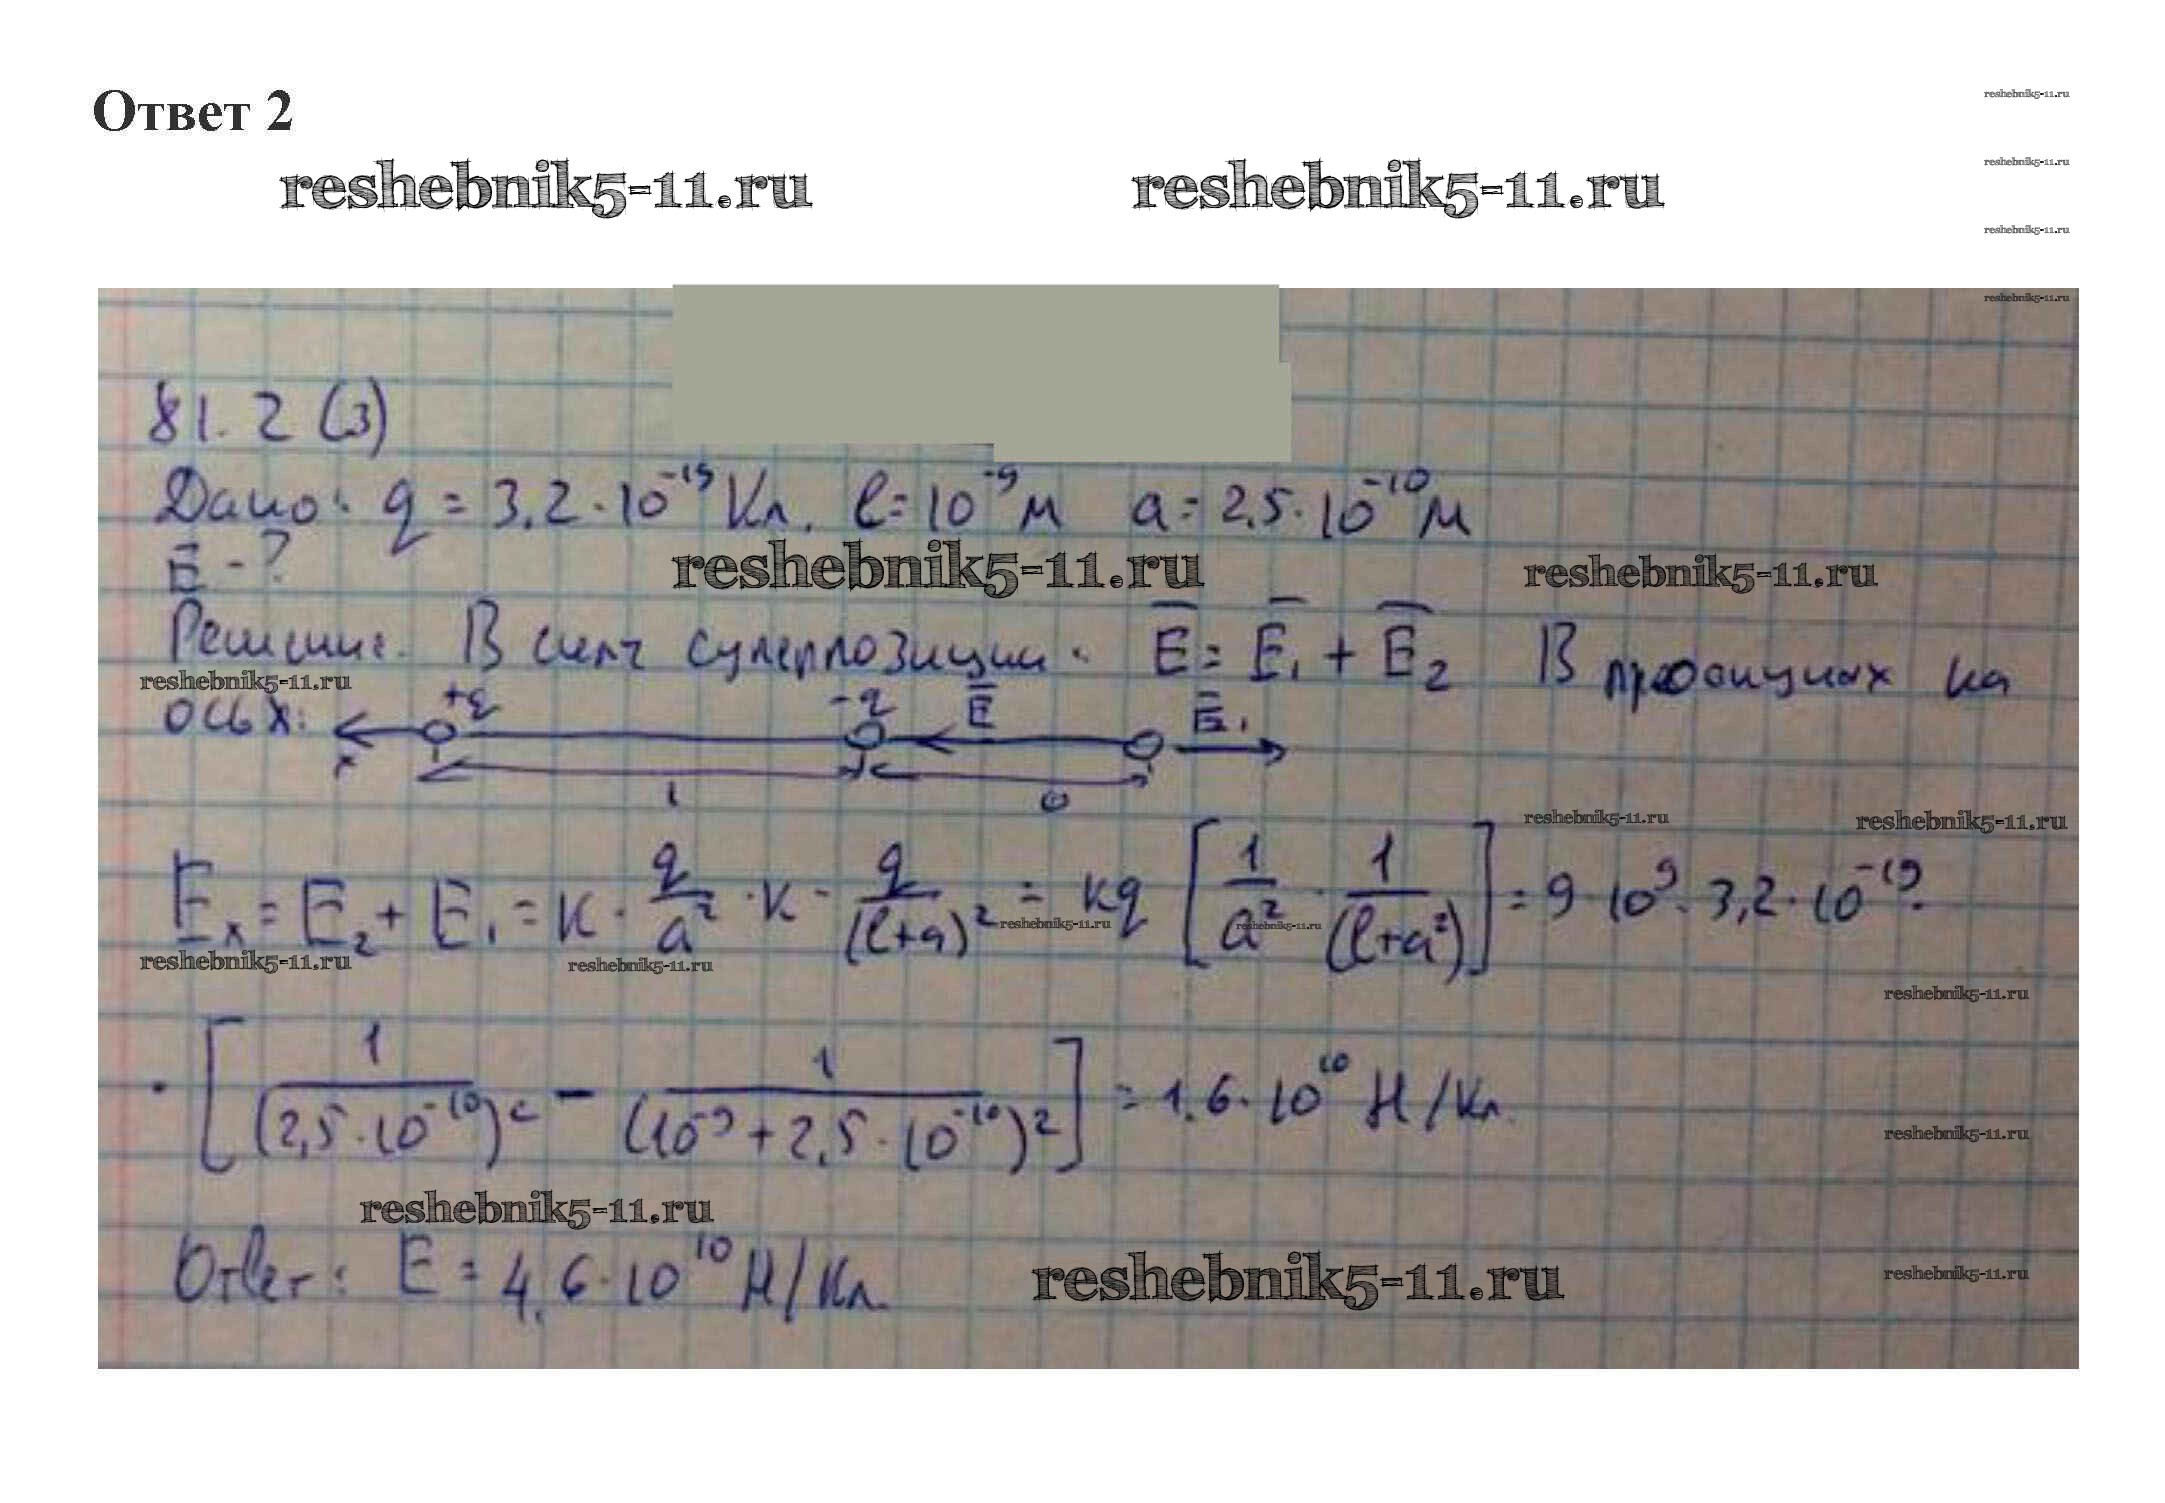 Ответ 2
reshebnik5-11.ru
reshebnik5-11.ru reshebnik5-11.ru
reshebnik5-11.ru
reshebnik5-11.ru
reshebnik5-11.ru
81.2 (3)
Дано: q = 3,2·10⁻¹⁹ Кл. l = 10⁻⁹ м a = 2,5·10⁻¹⁰ м
E̅ - ?
reshebnik5-11.ru reshebnik5-11.ru
Решение. В силу суперпозиции: E̅ = E̅₁ + E̅₂ В проекциях на
reshebnik5-11.ru
ось x: +q -q E̅ E̅₁
x l a
reshebnik5-11.ru reshebnik5-11.ru
Eₓ = E₂ + E₁ = K · q/a² · K - q/(l+a)² = kq [1/a² - 1/(l+a²)] = 9·10⁹·3,2·10⁻¹⁹·
reshebnik5-11.ru reshebnik5-11.ru
reshebnik5-11.ru reshebnik5-11.ru
reshebnik5-11.ru
· [1/(2,5·10⁻¹⁰)² - 1/(10⁻⁹ + 2,5·10⁻¹⁰)²] = 1,6·10¹⁰ Н/Кл.
reshebnik5-11.ru
reshebnik5-11.ru
Ответ: E = 4,6·10¹⁰ Н/Кл.
reshebnik5-11.ru reshebnik5-11.ru